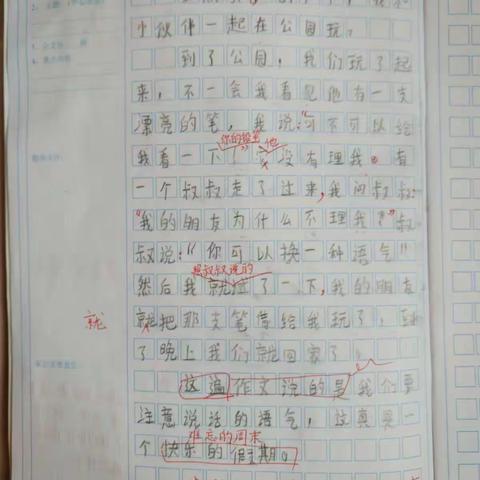 小伙伴一起在公园玩。
到了公园，我们玩了起
来，不一会我看见他有一支
漂亮的笔，我说：“可不可以给
你的铅笔 他
我看一下了”没有理我。有
一个叔叔走了过来，我问叔叔：
“我的朋友为什么不理我？”叔
叔说：“你可以换一种语气”
叔叔说的
然后我就了一下，我的朋友
就
就把那支笔拿给我玩了，到
了晚上我们就回家了。
这遍作文说的是我们要
注意说话的语气，这真是一
难忘的周末
个快乐的假期。